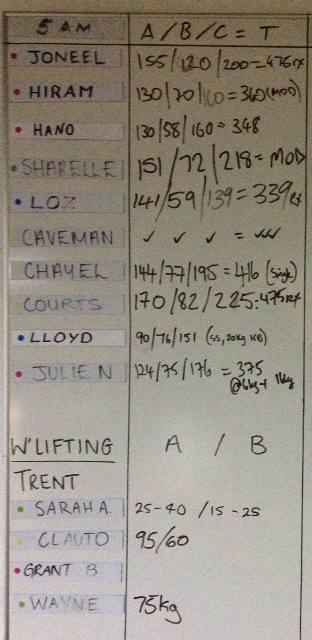 5 AM A/B/C = T
JONEEL 155/120/200=475rx
HIRAM 130/70/160=360(MOD)
HANO 130/58/160=348
SHARELLE 151/72/218=MOD
LOZ 141/59/139=339rx
CAVEMAN ✓ ✓ ✓ = ✓✓✓
CHAYEL 144/77/195=416
COURTS 170/82/225:475rx
LLOYD 90/76/151 (SS, 20kg KB)
JULIE N 124/75/176 = 375
@6kg+ 16kg
W'LIFTING A / B
TRENT
SARAH A. 25-40 /15-25
CLAUTO 95/60
GRANT B
WAYNE 75kg